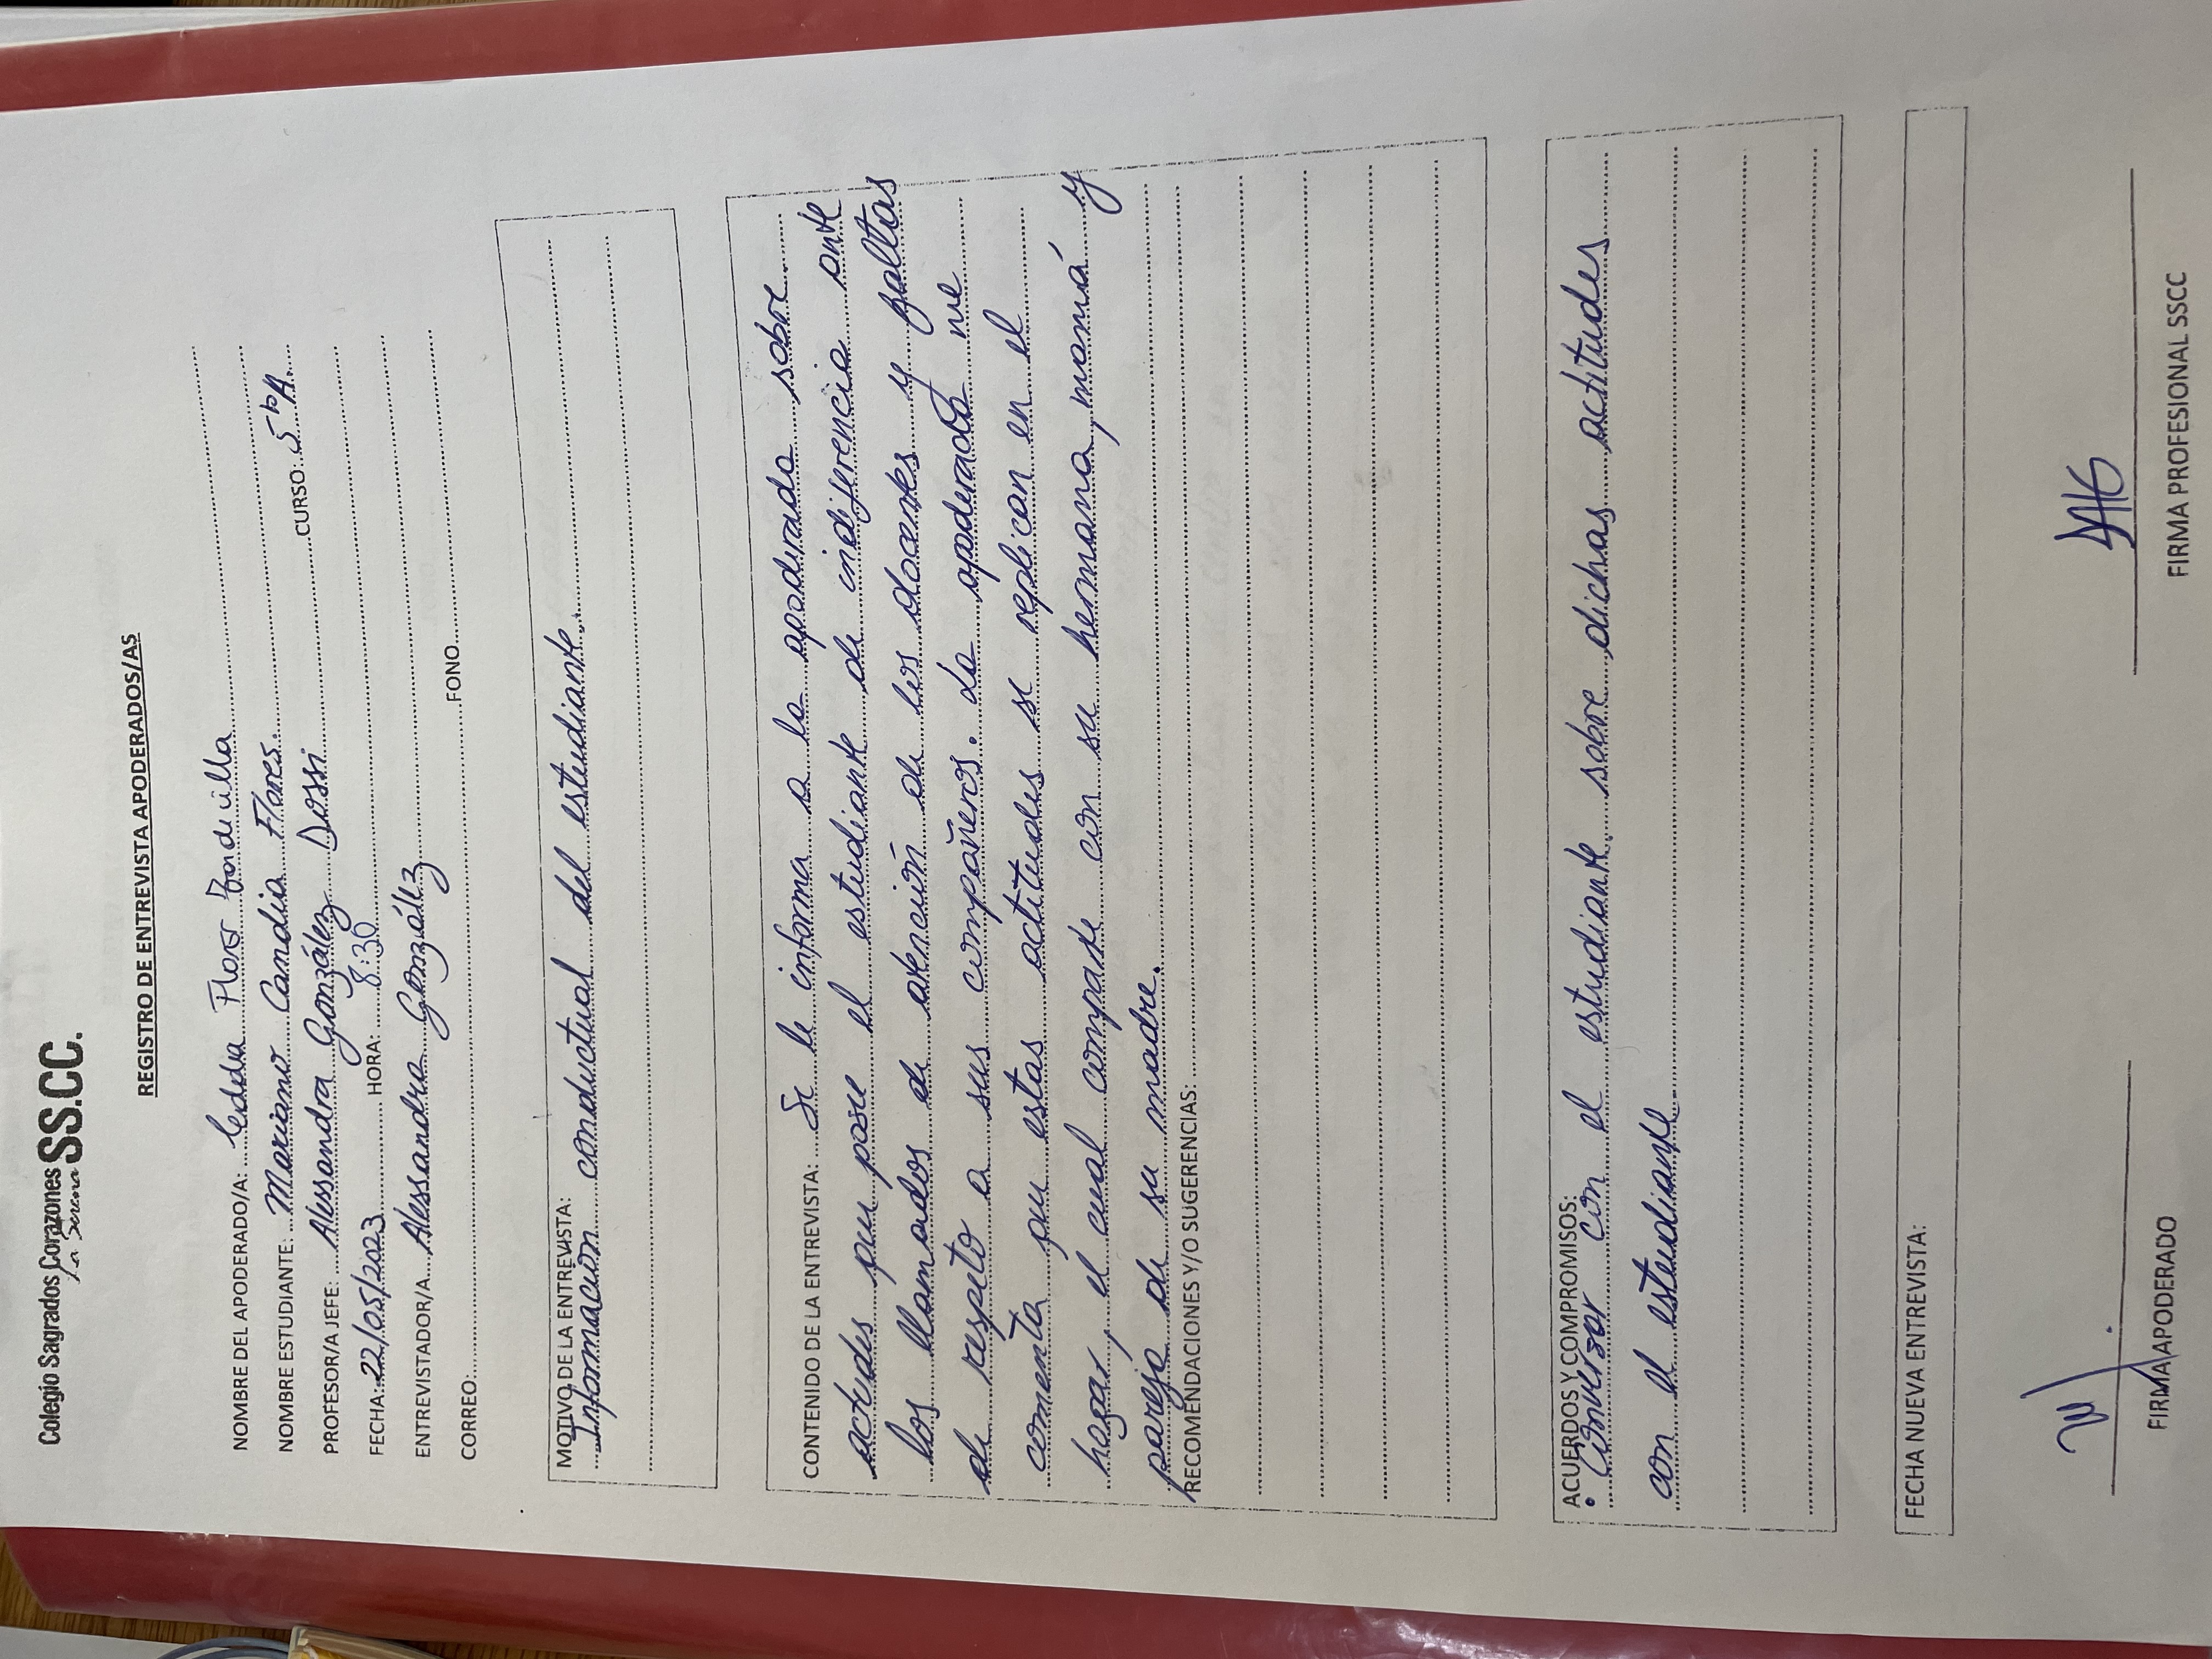 Colegio Sagrados Corazones SS.CC.
La Serena
REGISTRO DE ENTREVISTA APODERADOS/AS
NOMBRE DEL APODERADO/A: Flores
NOMBRE ESTUDIANTE: Mariano Candia Flores
PROFESOR/A JEFE: Alessandra González Dossi CURSO: 5ºA
FECHA: 22/05/2023 HORA: 8:30
ENTREVISTADOR/A Alessandra González
CORREO: FONO
MOTIVO DE LA ENTREVISTA:
Información conductual del estudiante.
CONTENIDO DE LA ENTREVISTA: Se le informa a la apoderada sobre
actudes que posee el estudiante de indiferencia ante
los llamados de atención de los docentes y faltas
de respeto a sus compañeros. La apoderada me
comenta que estas actitudes se replican en el
hogar, el cual comparte con su hermana, mamá y
pareja de su madre.
RECOMENDACIONES Y/O SUGERENCIAS:
ACUERDOS Y COMPROMISOS:
• Conversar con el estudiante sobre dichas actitudes
con el estudiante
FECHA NUEVA ENTREVISTA:
FIRMA APODERADO FIRMA PROFESIONAL SSCC